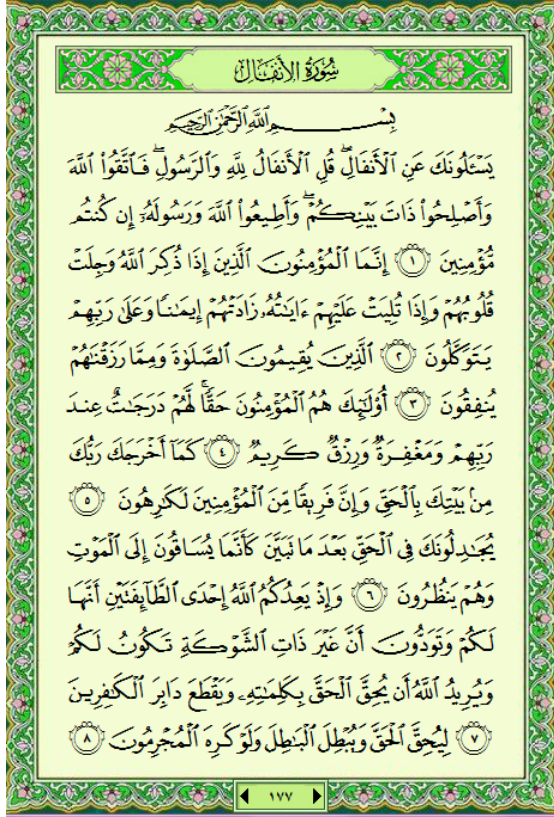 سُورَةُ الأَنفَالِ
بِسْمِ اللَّهِ الرَّحْمَٰنِ الرَّحِيمِ
يَسْـَٔلُونَكَ عَنِ ٱلْأَنفَالِ ۖ قُلِ ٱلْأَنفَالُ لِلَّهِ وَٱلرَّسُولِ ۖ فَٱتَّقُوا۟ ٱللَّهَ
وَأَصْلِحُوا۟ ذَاتَ بَيْنِكُمْ ۖ وَأَطِيعُوا۟ ٱللَّهَ وَرَسُولَهُۥٓ إِن كُنتُم
مُّؤْمِنِينَ ١ إِنَّمَا ٱلْمُؤْمِنُونَ ٱلَّذِينَ إِذَا ذُكِرَ ٱللَّهُ وَجِلَتْ
قُلُوبُهُمْ وَإِذَا تُلِيَتْ عَلَيْهِمْ ءَايَٰتُهُۥ زَادَتْهُمْ إِيمَٰنًا وَعَلَىٰ رَبِّهِمْ
يَتَوَكَّلُونَ ٢ ٱلَّذِينَ يُقِيمُونَ ٱلصَّلَوٰةَ وَمِمَّا رَزَقْنَٰهُمْ
يُنفِقُونَ ٣ أُو۟لَٰٓئِكَ هُمُ ٱلْمُؤْمِنُونَ حَقًّا ۚ لَّهُمْ دَرَجَٰتٌ عِندَ
رَبِّهِمْ وَمَغْفِرَةٌ وَرِزْقٌ كَرِيمٌ ٤ كَمَآ أَخْرَجَكَ رَبُّكَ
مِنۢ بَيْتِكَ بِٱلْحَقِّ وَإِنَّ فَرِيقًا مِّنَ ٱلْمُؤْمِنِينَ لَكَٰرِهُونَ ٥
يُجَٰدِلُونَكَ فِى ٱلْحَقِّ بَعْدَ مَا تَبَيَّنَ كَأَنَّمَا يُسَاقُونَ إِلَى ٱلْمَوْتِ
وَهُمْ يَنظُرُونَ ٦ وَإِذْ يَعِدُكُمُ ٱللَّهُ إِحْدَى ٱلطَّآئِفَتَيْنِ أَنَّهَا
لَكُمْ وَتَوَدُّونَ أَنَّ غَيْرَ ذَاتِ ٱلشَّوْكَةِ تَكُونُ لَكُمْ
وَيُرِيدُ ٱللَّهُ أَن يُحِقَّ ٱلْحَقَّ بِكَلِمَٰتِهِۦ وَيَقْطَعَ دَابِرَ ٱلْكَٰفِرِينَ
٧ لِيُحِقَّ ٱلْحَقَّ وَيُبْطِلَ ٱلْبَٰطِلَ وَلَوْ كَرِهَ ٱلْمُجْرِمُونَ ٨
١٧٧